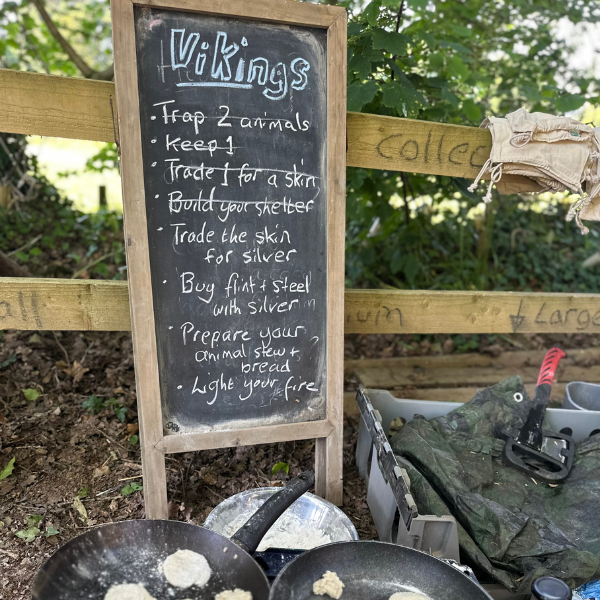 Vikings
• Trap 2 animals
• Keep 1
• Trade 1 for a skin
• Build your shelter
• Trade the skin
for silver
• Buy flint + steel
with silver
• Prepare your
animal stew +
bread
• Light your fire
Collec
all
ium
↓ Large